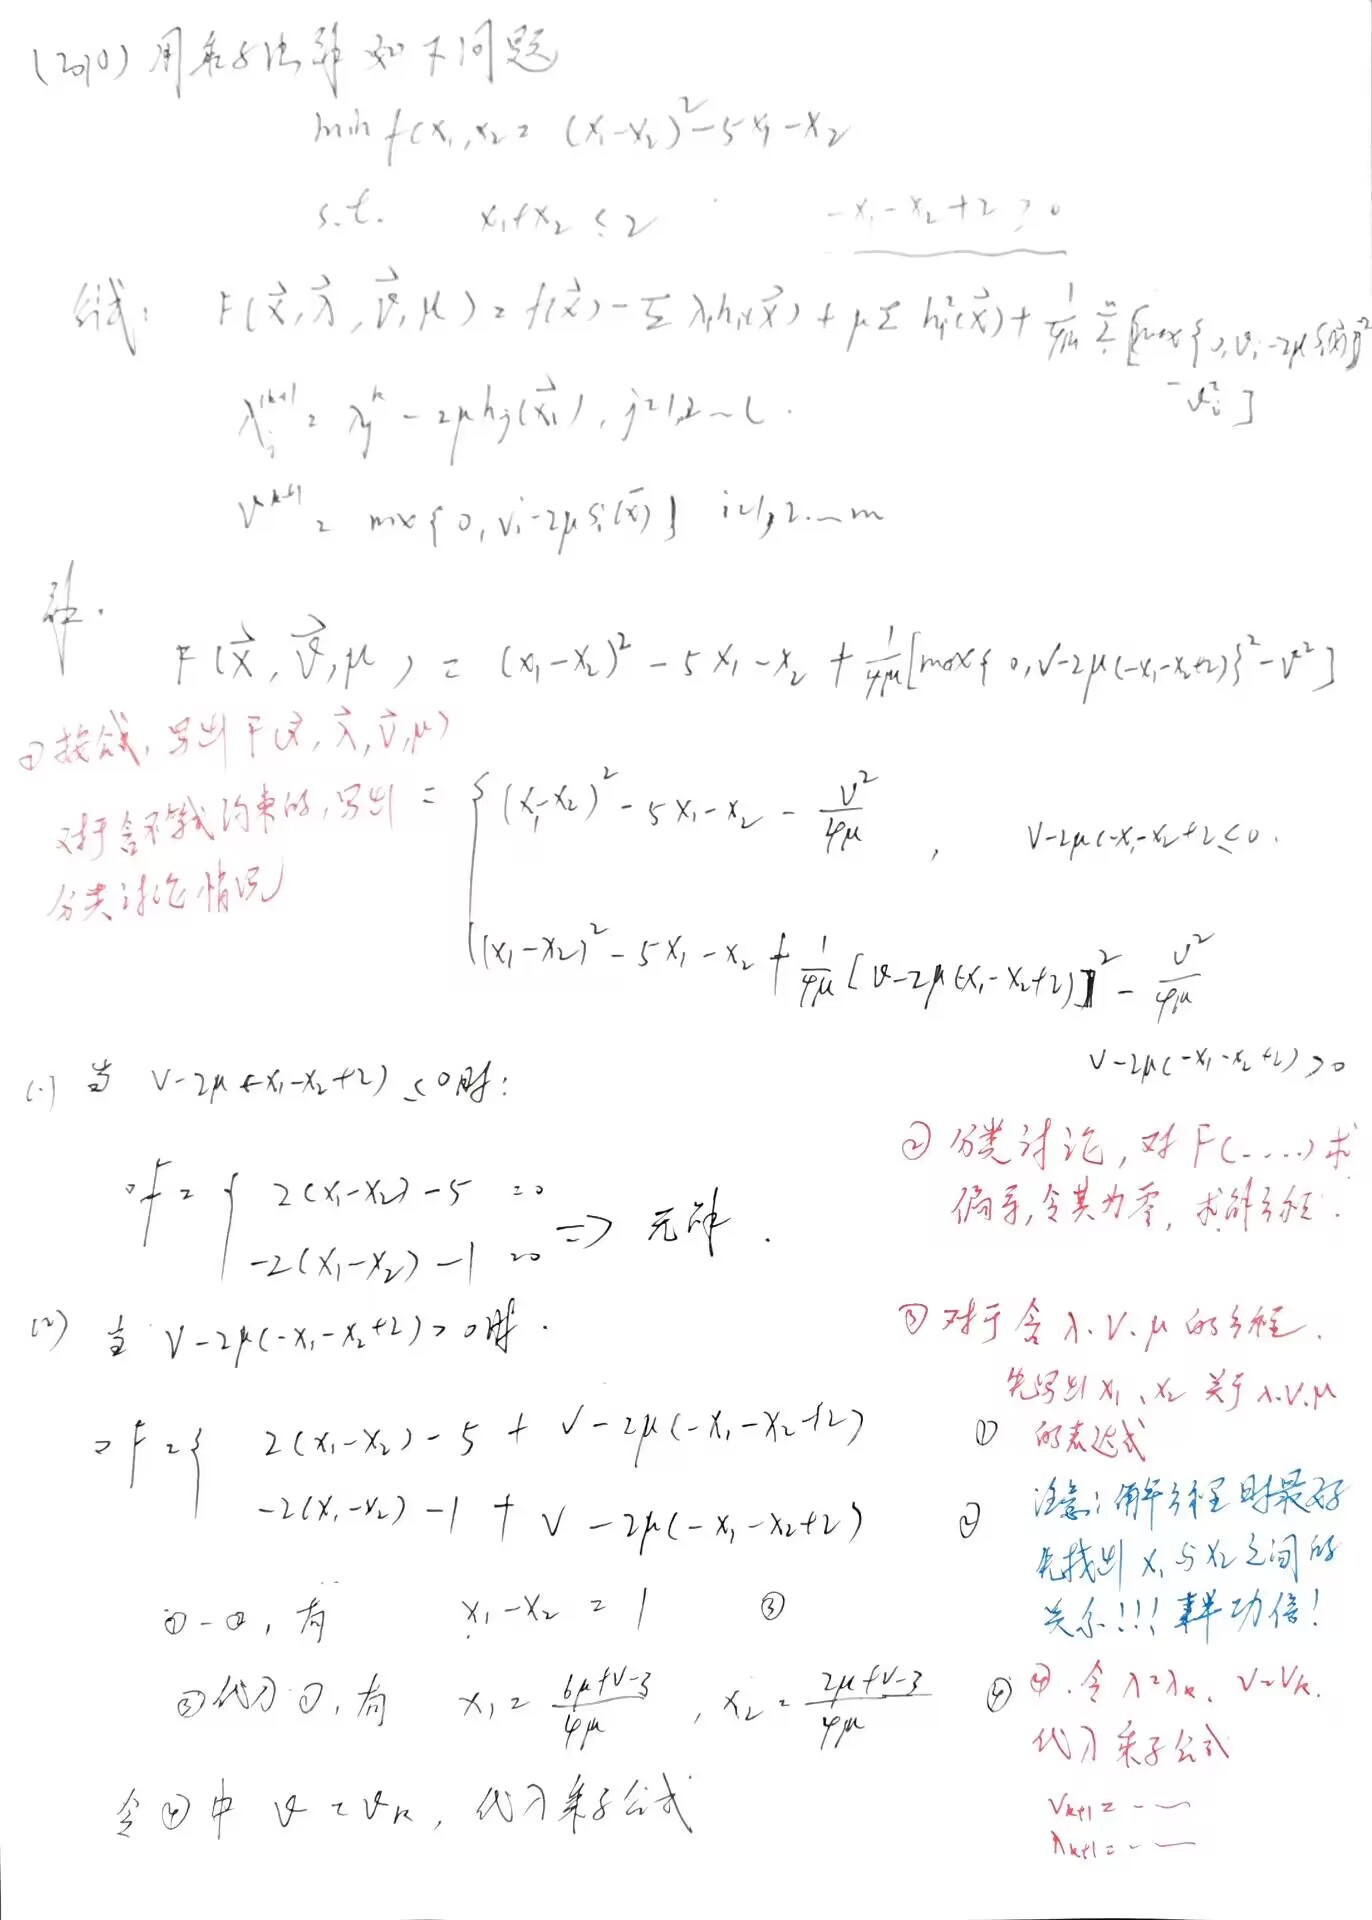 (2010) 用乘子法解如下问题
min f(x₁,x₂ = (x₁-x₂)²-5x₁-x₂
s.t. x₁+x₂ ≤ 2 -x₁-x₂+2 ≥ 0
公式: F(x⃗, λ⃗, v⃗, μ) = f(x⃗) - Σ λᵢhᵢ(x⃗) + μ Σ hᵢ²(x⃗) + 1/4μ Σ [max{0, vᵢ-2μ sᵢ(x⃗)}²
- vᵢ²]
λⱼ^(k+1) = λⱼ^k - 2μhⱼ(x⃗₁), j=1,2…l.
v^(k+1) = max{0, vᵢ-2μsᵢ(x̄)} i=1,2…m
解.
F(x⃗, v⃗, μ) = (x₁-x₂)² - 5x₁-x₂ + 1/4μ [max{0, v-2μ(-x₁-x₂+2)}²-v²]
① 按公式, 写出F(x⃗, λ⃗, v⃗, μ)
对于含不等式约束的, 写出
分类讨论情况
= { (x₁-x₂)² - 5x₁-x₂ - v²/4μ , v-2μ(-x₁-x₂+2 ≤ 0.
(x₁-x₂)² - 5x₁-x₂ + 1/4μ [v-2μ(-x₁-x₂+2)]² - v²/4μ
v-2μ(-x₁-x₂+2) > 0
(1) 当 v-2μ(-x₁-x₂+2) ≤ 0时:
② 分类讨论, 对F(....)求
偏导, 令其为零, 求解方程.
∇F = { 2(x₁-x₂)-5 = 0
-2(x₁-x₂)-1 = 0 => 无解.
(2) 当 v-2μ(-x₁-x₂+2) > 0时.
③ 对于含λ.v.μ的方程.
先写出x₁、x₂关于λ.v.μ
的表达式
∇F = { 2(x₁-x₂)-5 + v-2μ(-x₁-x₂+2) ①
-2(x₁-x₂)-1 + v-2μ(-x₁-x₂+2) ②
注意: 解方程时最好
先找出x₁与x₂之间的
关系!!! 事半功倍!
①-②, 有 x₁-x₂ = 1 ③
③代入①, 有 x₁ = (6μ+v-3)/4μ , x₂ = (2μ+v-3)/4μ ④
④. 令λ=λₖ, v=vₖ.
代入乘子公式
vₖ₊₁ = ……
λₖ₊₁ = ……
令④中 v = vₖ, 代入乘子公式